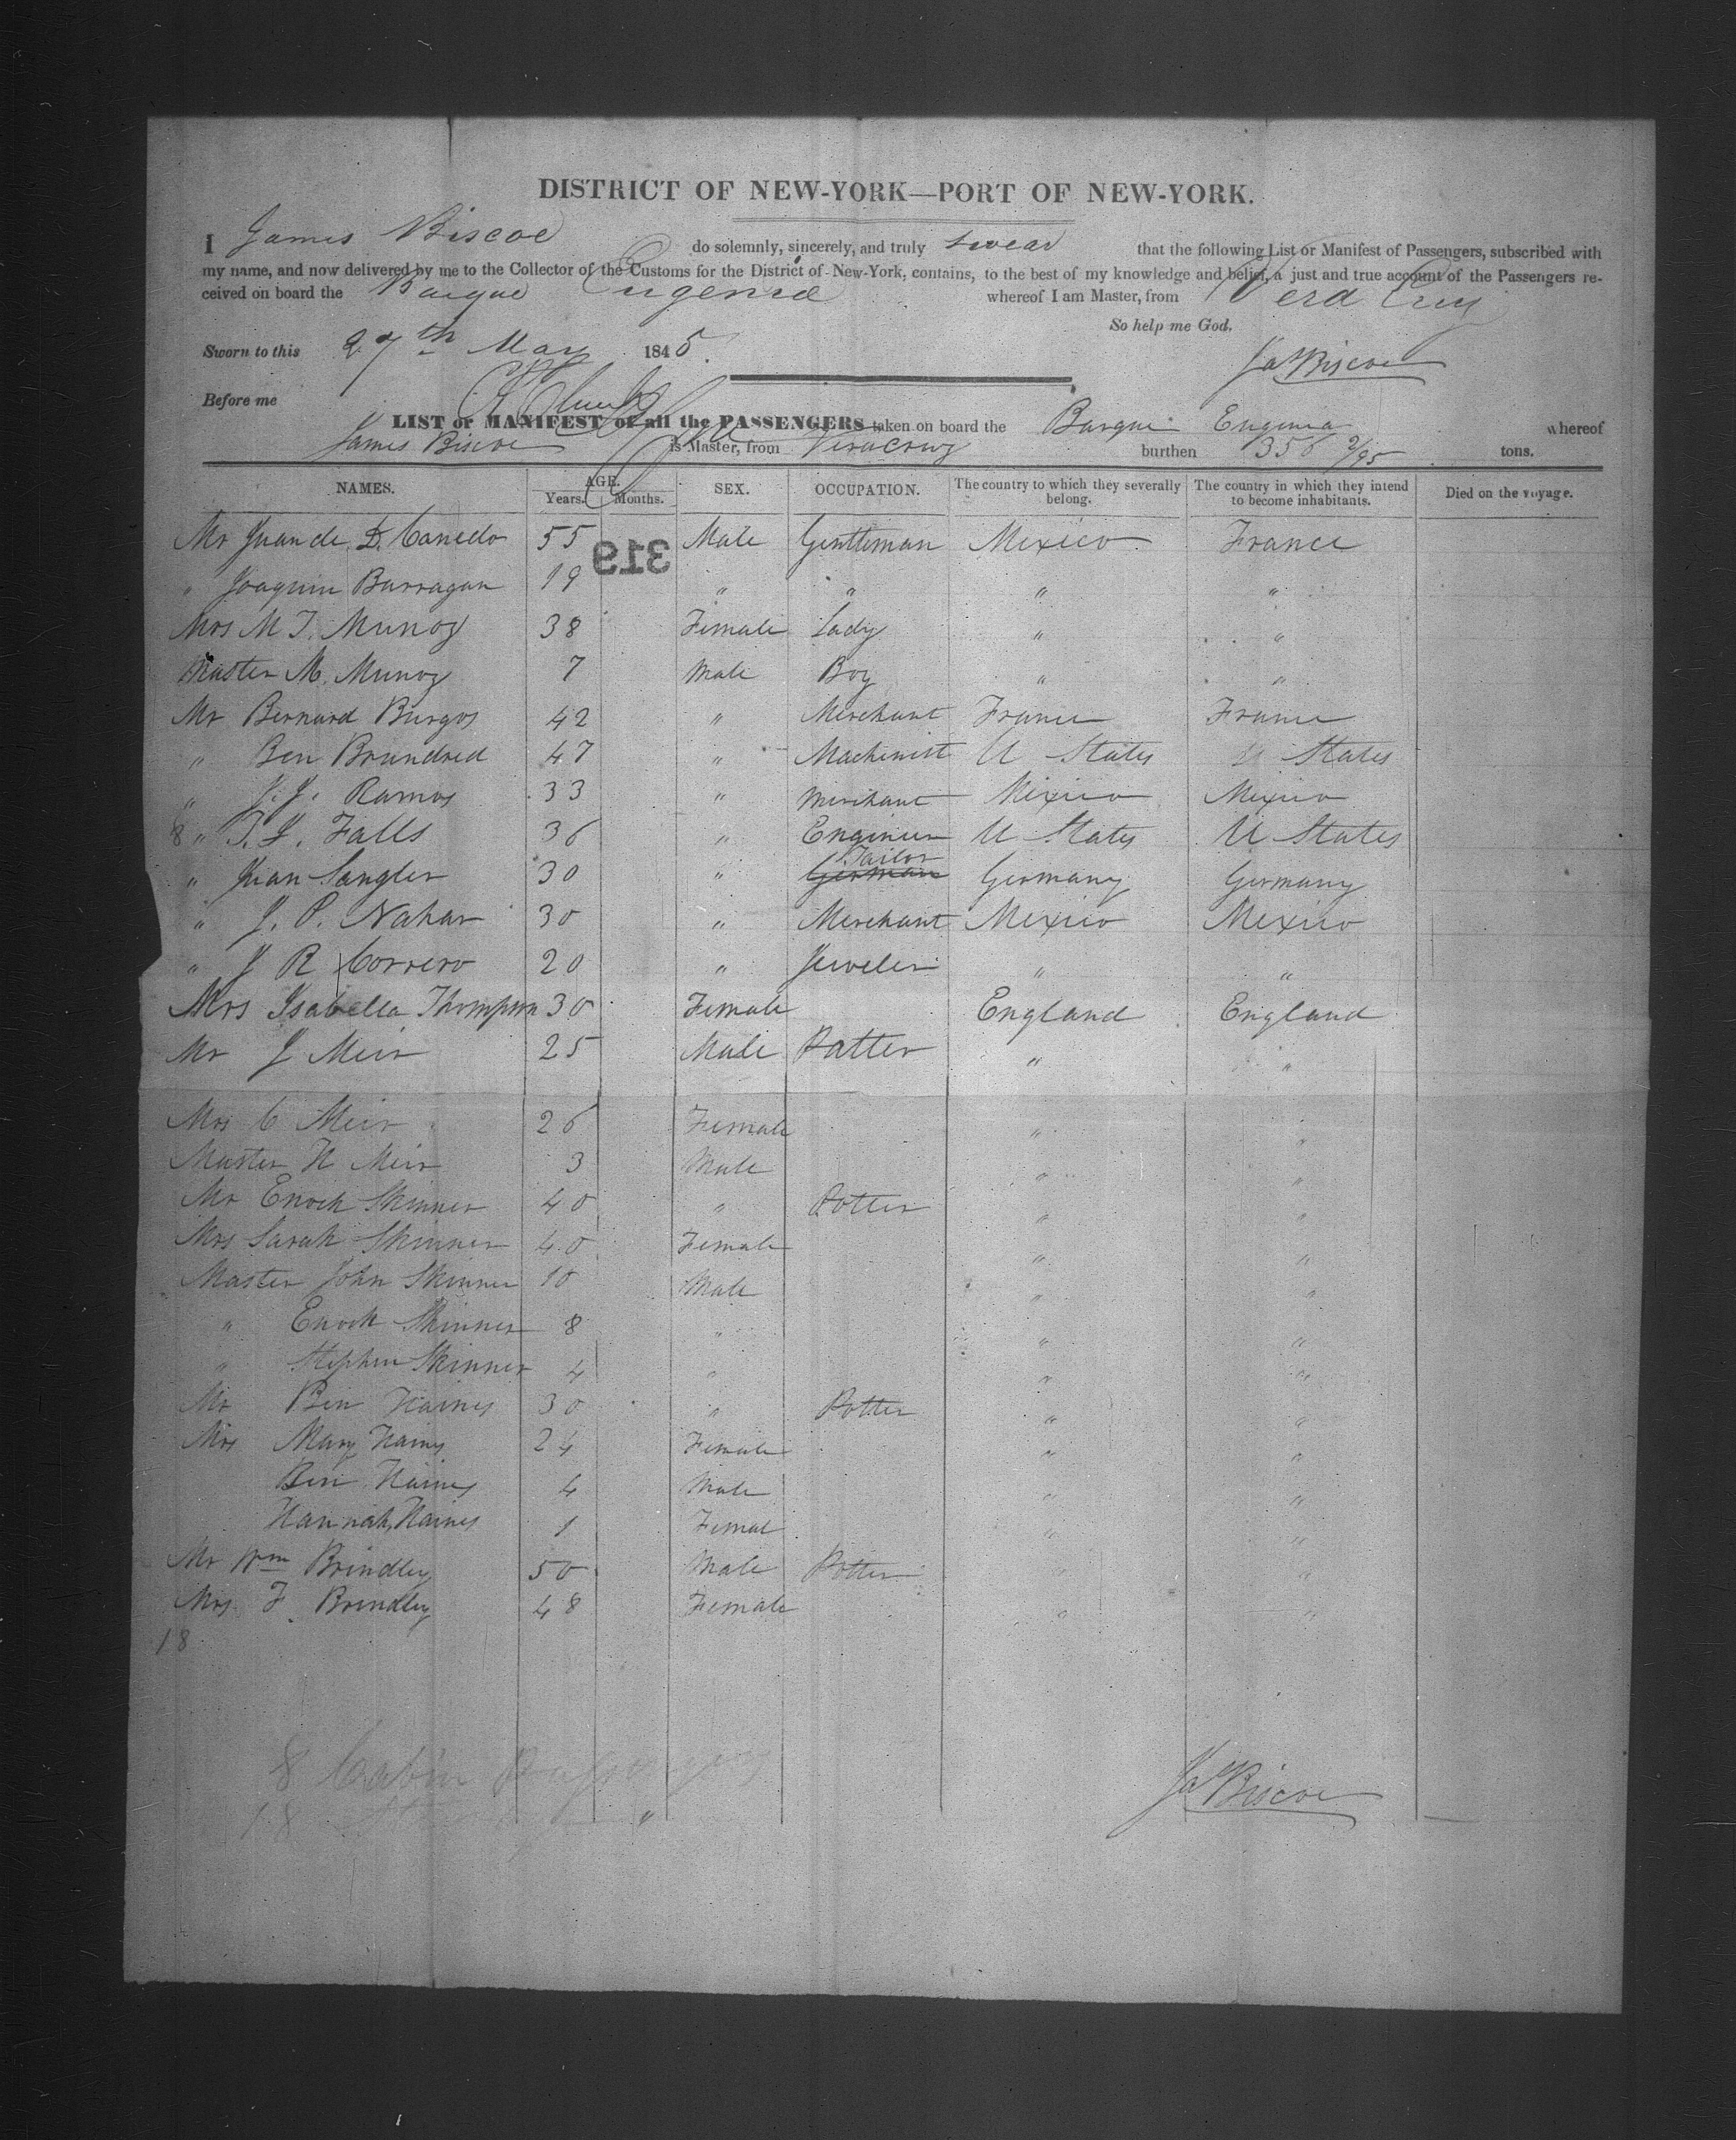 DISTRICT OF NEW-YORK—PORT OF NEW-YORK.
I James Biscoe do solemnly, sincerely, and truly swear that the following List or Manifest of Passengers, subscribed with
my name, and now delivered by me to the Collector of the Customs for the District of New-York, contains, to the best of my knowledge and belief, a just and true account of the Passengers re-
ceived on board the Barque Eugenia whereof I am Master, from Vera Cruz
So help me God.
Sworn to this 27th May 1845.
Jas Biscoe
Before me
LIST or MANIFEST of all the PASSENGERS taken on board the Barque Eugenia whereof
James Biscoe is Master, from Veracruz burthen 356 2/95 tons.
NAMES. AGE. Years. Months. SEX. OCCUPATION. The country to which they severally belong. The country in which they intend to become inhabitants. Died on the voyage.
Mr Juan de D. Canedo 55 Male Gentleman Mexico France
319
" Joaquin Barragan 19 " " " "
Mrs M J. Munoz 38 Female Lady " "
Master M. Munoz 7 Male Boy " "
Mr Bernard Burgos 42 " Merchant France France
" Ben Brundred 47 " Machinist U States U States
" J. J. Ramos 33 " Merchant Mexico Mexico
8 " T. J. Falls 36 " Engineer U States U States
" Juan Sangler 30 " German Tailor Germany Germany
" J. P. Nahar 30 " Merchant Mexico Mexico
" J R Correro 20 " Jeweler " "
Mrs Isabella Thompson 30 Female England England
Mr J Meir 25 Male Potter " "
Mrs C Meir 26 Female " "
Master H Meir 3 Male " "
Mr Enoch Skinner 40 " Potter " "
Mrs Sarah Skinner 40 Female " "
Master John Skinner 10 Male " "
" Enoch Skinner 8 " " "
" Stephen Skinner 4 " " "
Mr Ben Haines 30 " Potter " "
Mrs Mary Haines 24 Female " "
Ben Haines 4 Male " "
Hannah Haines 1 Femal " "
Mr Wm Brindley 50 Male Potter " "
Mrs F Brindley 48 Female " "
18
8 Cabin Passengers
18 "
Jas Biscoe